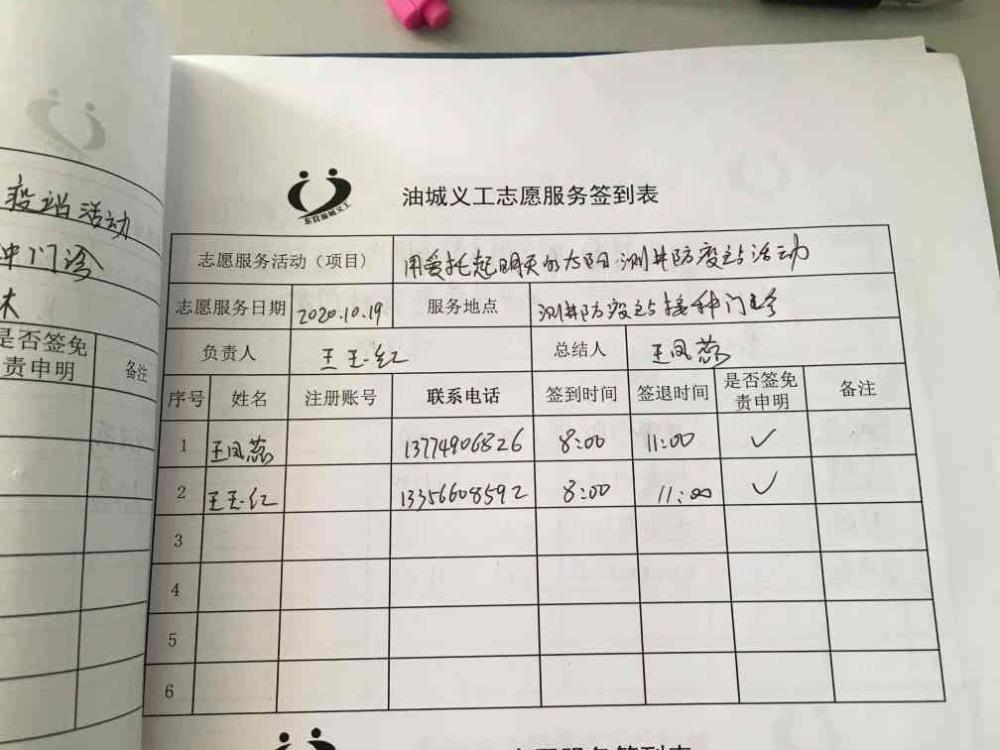 疫站活动
种门诊
是否签免
责申明
备注
东营油城义工
油城义工志愿服务签到表
志愿服务活动（项目） 用爱托起明天的太阳测井防疫站活动
志愿服务日期 2020.10.19 服务地点 测井防疫站接种门诊
负责人 王玉红 总结人 王凤蕊
序号 姓名 注册账号 联系电话 签到时间 签退时间 是否签免责申明 备注
1 王凤蕊 13774906826 8:00 11:00 ✓
2 王玉红 13356608592 8:00 11:00 ✓
3
4
5
6